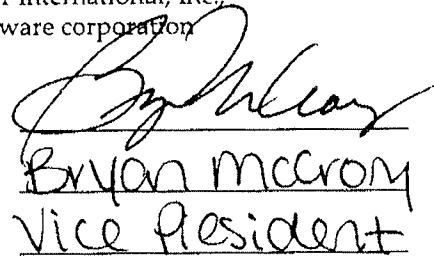 International, Inc.,
ware corporation
Bryan McCrory
Vice President